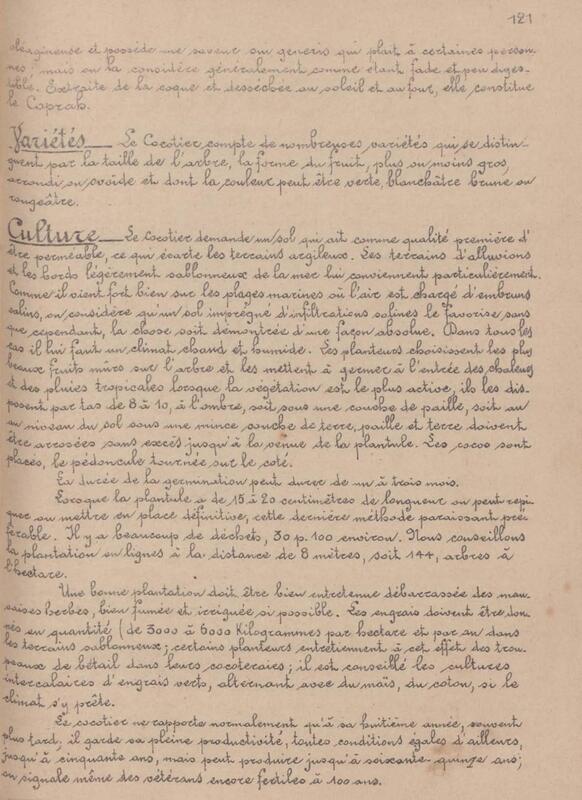 121
oléagineuse et possède une saveur sui generis qui plait à certaines person-
nes, mais on la considère généralement comme étant fade et peu diges-
tible. Extraite de la coque et desséchée au soleil et au four, elle constitue
le Coprah.
Variétés — Le Cocotier compte de nombreuses variétés qui se distin-
guent par la taille de l'arbre, la forme du fruit, plus ou moins gros,
arrondi, ou ovoïde et dont la couleur peut être verte, blanchâtre brune ou
rougeâtre.
Culture — Le Cocotier demande un sol qui ait comme qualité première d'
être perméable, ce qui écarte les terrains argileux. Les terrains d'alluvions
et les bords légèrement sablonneux de la mer lui conviennent particulièrement.
Comme il vient fort bien sur les plages marines où l'air est chargé d'embruns
salins, on considère qu'un sol imprégné d'infiltrations salines le favorise sans
que cependant, la chose soit démontrée d'une façon absolue. Dans tous les
cas il lui faut un climat chaud et humide. Les planteurs choisissent les plus
beaux fruits mûrs sur l'arbre et les mettent à germer à l'entrée des chaleurs
et des pluies tropicales lorsque la végétation est le plus active, ils les dis-
posent par tas de 8 à 10, à l'ombre, soit sous une couche de paille, soit au
au niveau du sol sous une mince couche de terre, paille et terre doivent
être arrosées sans excès jusqu'à la venue de la plantule. Les cocos sont
placés, le pédoncule tournée sur le coté.
La durée de la germination peut durer de un à trois mois.
Lorsque la plantule a de 15 à 20 centimètres de longueur on peut repi-
quer ou mettre en place définitive, cette dernière méthode paraissant pré-
férable. Il y a beaucoup de déchets, 30 p. 100 environ. Nous conseillons
la plantation en lignes à la distance de 8 mètres, soit 144, arbres à
l'hectare.
Une bonne plantation doit être bien entretenue débarrassée des mau-
vaises herbes, bien fumée et irriguée si possible. Les engrais doivent être don-
nés en quantité (de 3000 à 6000 Kilogrammes par hectare et par an dans
les terrains sablonneux; certains planteurs entretiennent à cet effet des trou-
peaux de bétail dans leurs cocoteraies; il est conseillé les cultures
intercalaires d'engrais verts, alternant avec du maïs, du coton, si le
climat s'y prête.
Le cocotier ne rapporte normalement qu'à sa huitième année, souvent
plus tard; il garde sa pleine productivité, toutes conditions égales d'ailleurs,
jusqu'à cinquante ans, mais peut produire jusqu'à soixante-quinze ans;
on signale même des vétérans encore fertiles à 100 ans.